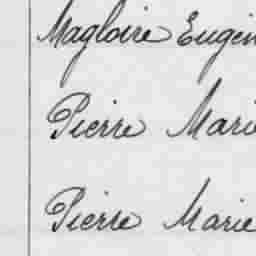 Magloire Eugèn
Pierre Marie
Pierre Marie